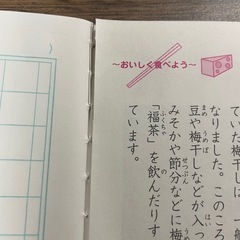 ～おいしく食べよう～
ていた梅干しは、一
なりました。このころ
豆や梅干しなどが入っ
みそかや節分などに梅
「福茶」を飲んだりす
ています。